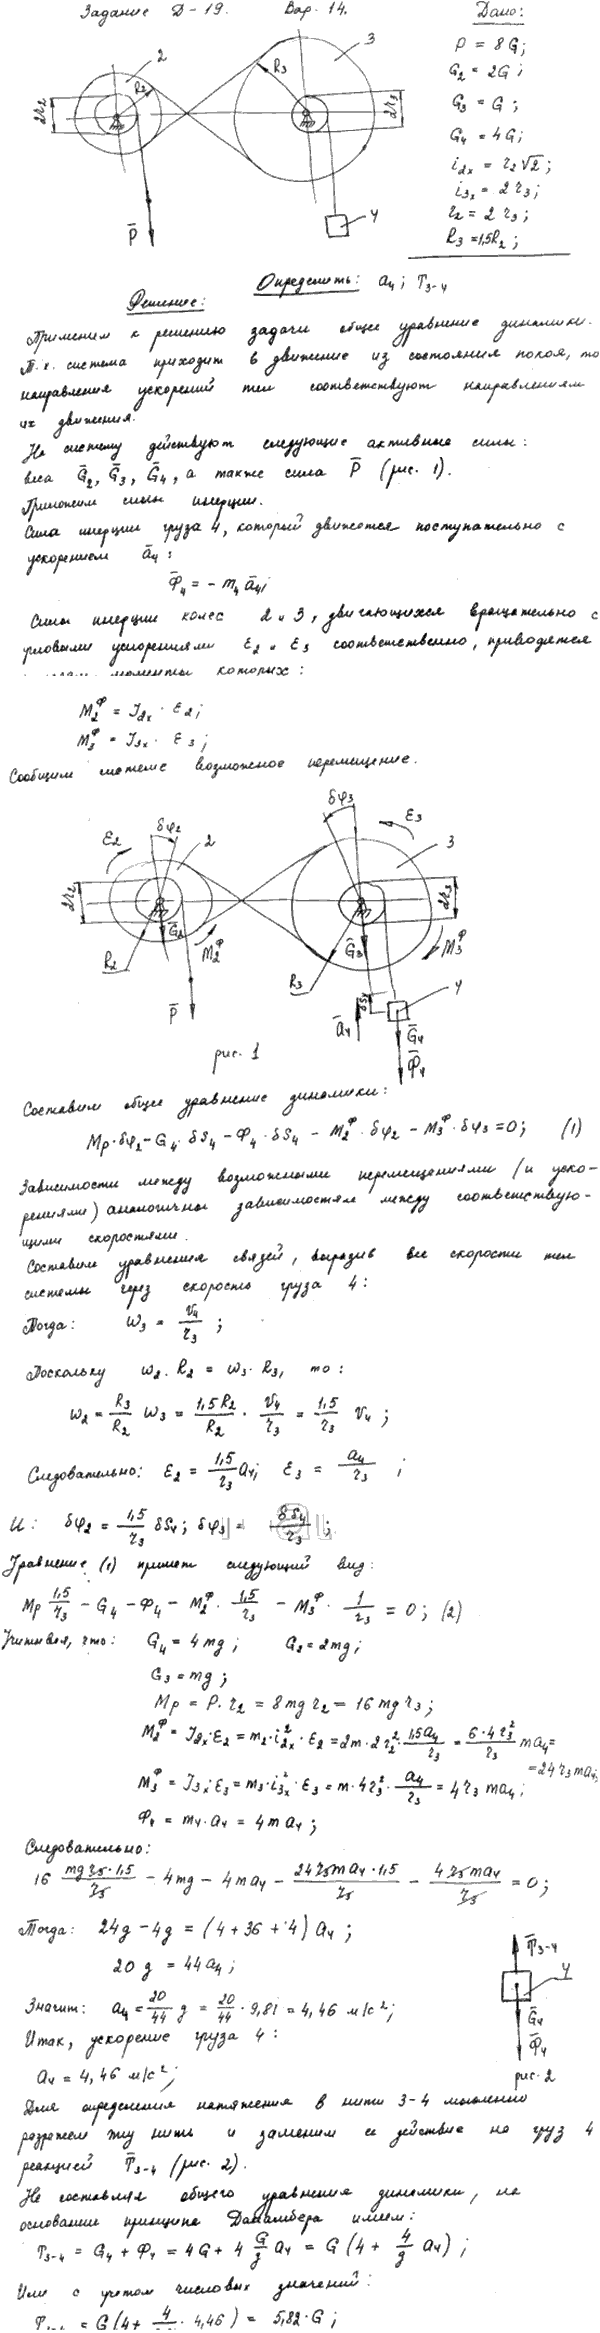 Задание Д-19. Вар. 14.
Дано:
P = 8G;
G₂ = 2G;
G₃ = G;
G₄ = 4G;
i₂ₓ = r₂√2;
i₃ₓ = 2r₃;
r₂ = 2r₃;
R₃ = 1,5R₂;
2 3 R₂ R₃ 2r₂ 2r₃ P̄ 4
Определить: a₄; T₃₋₄
Решение:
Применим к решению задачи общее уравнение динамики.
Т.к. система приходит в движение из состояния покоя, то
направления ускорений тел соответствуют направлениям
их движения.
На систему действуют следующие активные силы:
веса Ḡ₂, Ḡ₃, Ḡ₄, а также сила P̄ (рис. 1).
Приложим силы инерции.
Сила инерции груза 4, который движется поступательно с
ускорением ā₄:
Φ̄₄ = - m₄ā₄;
Силы инерции колес 2 и 3, двигающихся вращательно с
угловыми ускорениями ε₂ и ε₃ соответственно, приводятся
моменты которых:
M₂^Φ = J₂ₓ · ε₂;
M₃^Φ = J₃ₓ · ε₃;
Сообщим системе возможное перемещение.
δφ₃ ε₃
ε₂ δφ₂ 2 3
2r₂ 2r₃
Ḡ₂ Ḡ₃ M₂^Φ M₃^Φ
R₂ R₃ 4
P̄ ā₄ δS₄ Ḡ₄
рис. 1 Φ̄₄
Составим общее уравнение динамики:
Mp·δφ₂ - G₄·δS₄ - Φ₄·δS₄ - M₂^Φ·δφ₂ - M₃^Φ·δφ₃ = 0; (1)
Зависимости между возможными перемещениями (и уско-
рениями) аналогичны зависимостям между соответствую-
щими скоростями.
Составим уравнения связей, выразив все скорости тел
системы через скорость груза 4:
Тогда: ω₃ = V₄/r₃;
Поскольку ω₂·R₂ = ω₃·R₃, то:
ω₂ = R₃/R₂ ω₃ = 1,5R₂/R₂ · V₄/r₃ = 1,5/r₃ V₄;
Следовательно: ε₂ = 1,5/r₃ a₄; ε₃ = a₄/r₃;
И: δφ₂ = 1,5/r₃ δS₄; δφ₃ = δS₄/r₃;
Уравнение (1) примет следующий вид:
Mp 1,5/r₃ - G₄ - Φ₄ - M₂^Φ · 1,5/r₃ - M₃^Φ · 1/r₃ = 0; (2)
Учитывая, что: G₄ = 4mg; G₂ = 2mg;
G₃ = mg;
Mp = P·r₂ = 8mgr₂ = 16mgr₃;
M₂^Φ = J₂ₓ·ε₂ = m₂·i₂ₓ²·ε₂ = 2m·2r₂²·1,5a₄/r₃ = 6·4r₃²/r₃ ma₄ =
= 24r₃ma₄;
M₃^Φ = J₃ₓ·ε₃ = m₃·i₃ₓ²·ε₃ = m·4r₃²·a₄/r₃ = 4r₃ma₄;
Φ₄ = m₄·a₄ = 4ma₄;
Следовательно:
16 mgr₃·1,5/r₃ - 4mg - 4ma₄ - 24r₃ma₄·1,5/r₃ - 4r₃ma₄/r₃ = 0;
Тогда: 24g - 4g = (4+36+4)a₄;
20g = 44a₄;
Значит: a₄ = 20/44 g = 20/44 · 9,81 = 4,46 м/с²;
Итак, ускорение груза 4:
a₄ = 4,46 м/с²;
T̄₃₋₄ 4 Ḡ₄ Φ̄₄
рис. 2
Для определения натяжения в нити 3-4 мысленно
разрежем эту нить и заменим ее действие на груз 4
реакцией T̄₃₋₄ (рис. 2).
Не составляя общего уравнения динамики, на
основании принципа Даламбера имеем:
T₃₋₄ = G₄ + Φ₄ = 4G + 4 G/g a₄ = G(4 + 4/g a₄);
Или с учетом числовых значений:
= G(4 + 4/ · 4,46) = 5,82·G;